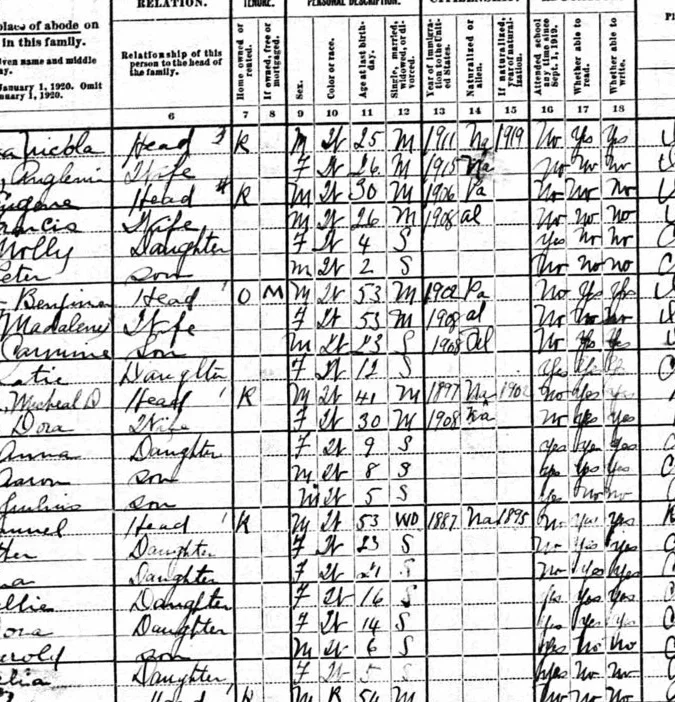 RELATION. TENURE. PERSONAL DESCRIPTION. CITIZENSHIP.
place of abode on
in this family.
given name and middle
January 1, 1920. Omit
January 1, 1920.
Relationship of this person to the head of the family.
Home owned or rented.
If owned, free or mortgaged.
Sex.
Color or race.
Age at last birthday.
Single, married, widowed, or divorced.
Year of immigration to the United States.
Naturalized or alien.
If naturalized, year of naturalization.
Attended school any time since Sept. 1, 1919.
Whether able to read.
Whether able to write.
6 7 8 9 10 11 12 13 14 15 16 17 18
Nicola Head R M W 25 M 1911 Na 1919 No Yes Yes
Wife F W 26 M 1915 Na No No No
Eugene Head R M W 30 M 1906 Pa No No No
Francis Wife M W 26 M 1908 al No No No
Molly Daughter F W 4 S Yes No No
Peter son M W 2 S No No No
Benjimen Head O M M W 53 M 1902 Pa No Yes Yes
Madalene Wife F W 53 M 1908 al No No No
Carmine son M W 23 S 1908 Al No Yes Yes
Katie Daughter F W 12 S Yes
Micheal D Head R M W 41 M 1897 Na 1902 No Yes Yes
Dora Wife F W 30 M 1908 Na No Yes Yes
Anna Daughter F W 9 S Yes Yes Yes
Aaron son M W 8 S Yes Yes Yes
Julius son M W 5 S Yes No No
Head R M W 53 WD 1887 Na 1895 No Yes Yes
Daughter F W 23 S No Yes Yes
Daughter F W 21 S No Yes Yes
Daughter F W 16 S Yes Yes Yes
Daughter F W 14 S Yes Yes Yes
son M W 6 S Yes No No
Daughter F W 5 S Yes No No
Head R M 54 M No No No